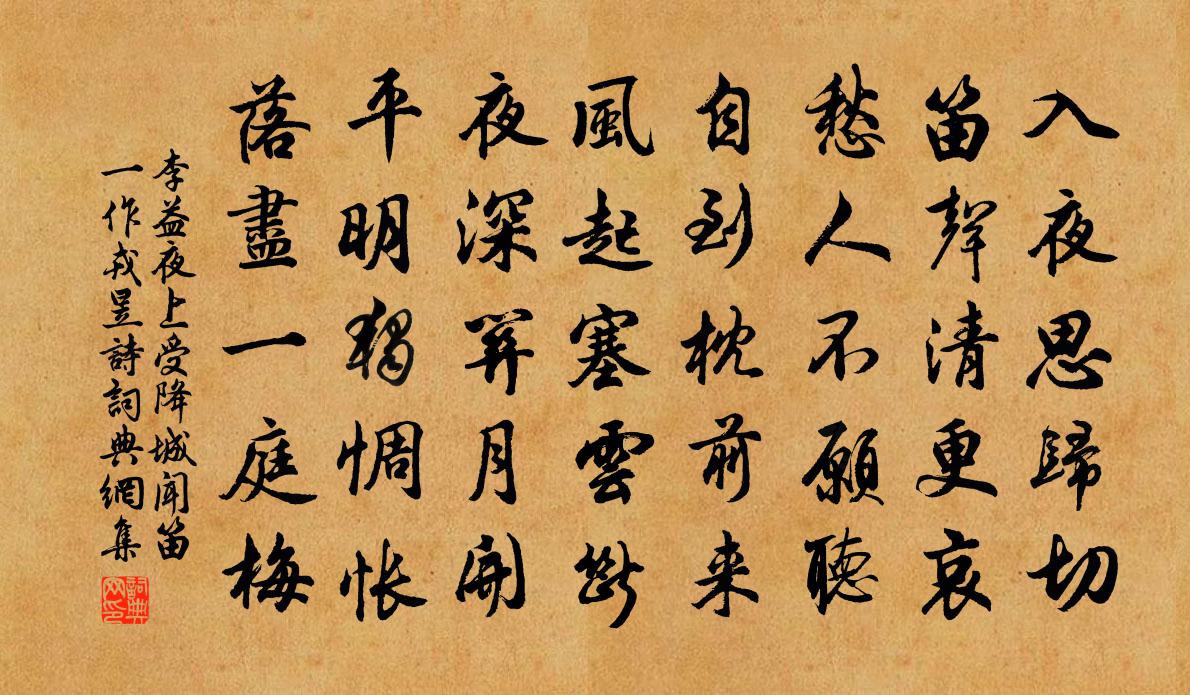 入夜思歸切
笛聲清更哀
愁人不願聽
自到枕前来
風起塞雲斷
夜深關月開
平明獨惆悵
落盡一庭梅
李益夜上受降城聞笛
一作戎昱詩詞典網集
詞典
网印